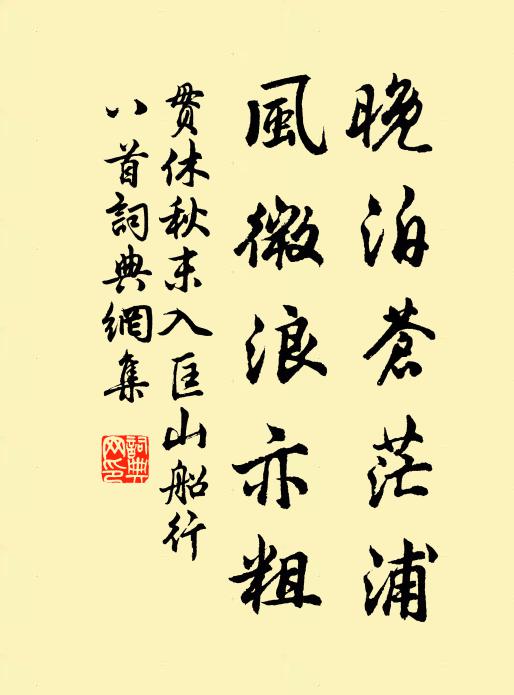 晚泊蒼茫浦
風微浪亦粗
貫休秋末入匡山船行
八首詞典網集
詞典
网印